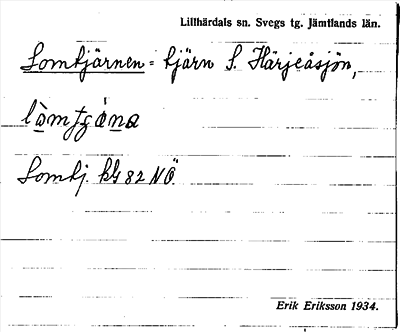 Lillhärdals sn. Svegs tg. Jämtlands län.
Lomtjärnen = tjärn S. Härjeåsjön,
lòmṯgæ̀na
Lomtj. kG 82 NÖ
Erik Eriksson 1934.